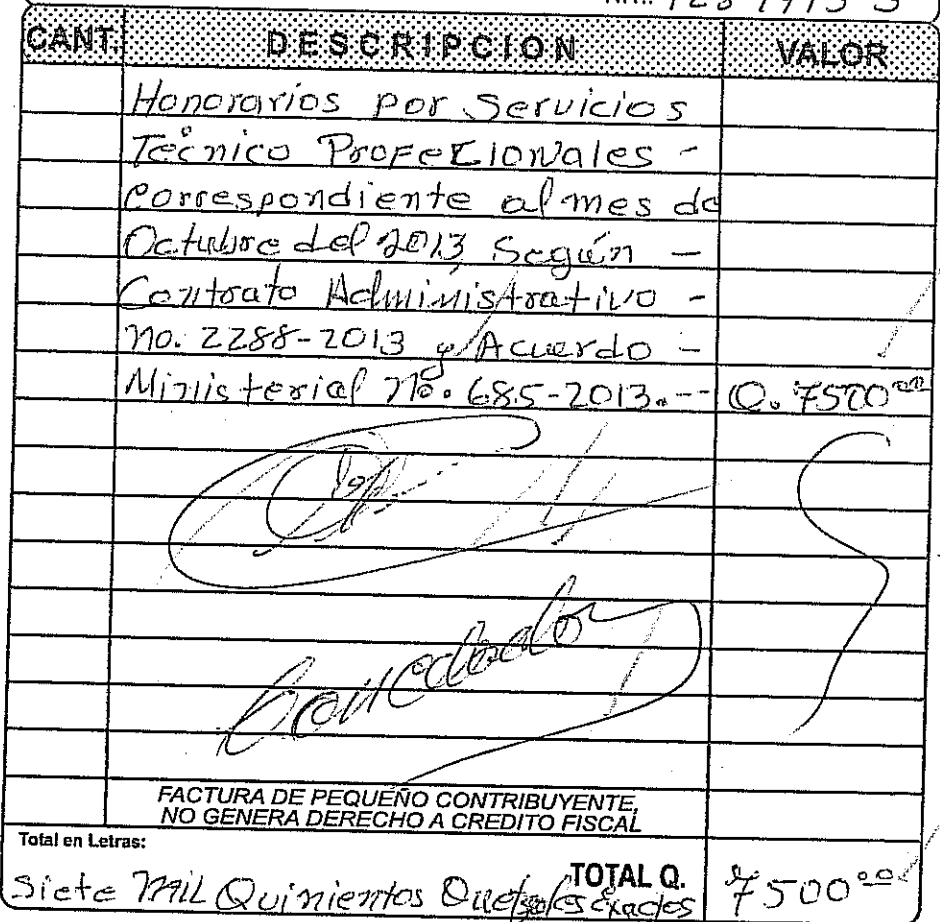 CANT. DESCRIPCION VALOR
Honorarios por Servicios
Técnico Profecionales -
correspondiente al mes de
Octubre del 2013, Según -
Contrato Administrativo -
no. 2288-2013 y Acuerdo -
Ministerial no. 685-2013.-- Q. 7500.00
Cancelado
FACTURA DE PEQUEÑO CONTRIBUYENTE,
NO GENERA DERECHO A CREDITO FISCAL
Total en Letras:
Siete Mil Quinientos Quetzales exactos TOTAL Q. 7500.00